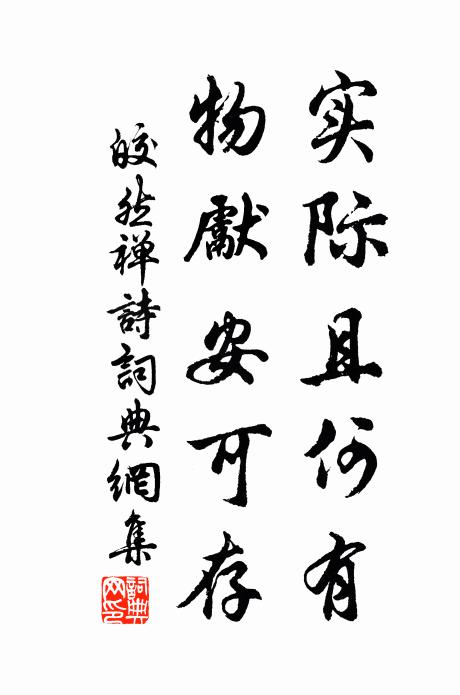 实际且何有
物獻安可存
皎然禅詩詞典網集
詞典
网印